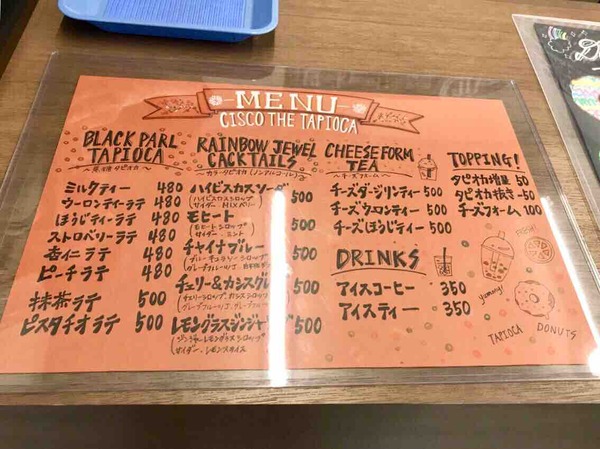 MENU
CISCO THE TAPIOCA
BLACK PARL
TAPIOCA
ミルクティー 480
ウーロンティーラテ 480
ほうじティーラテ 480
ストロベリーラテ 480
杏仁ラテ 480
ピーチラテ 480
抹茶ラテ 500
ピスタチオラテ 500
RAINBOW JEWEL
CACKTAILS
〜カラータピオカ(ノンアルコール)〜
ハイビスカスソーダ 500
(ハイビスカスシロップ
サイダー、MIXベリー)
モヒート 500
(モヒートシロップ
サイダー、ミント)
チャイナブルー 500
チェリー&カシスグレ 500
レモングラスジンジャー 500
(ジンジャーレモングラスシロップ
サイダー、レモンスライス)
CHEESE FORM
TEA
〜チーズフォーム〜
チーズダージリンティー 500
チーズウーロンティー 500
チーズほうじティー 500
DRINKS
アイスコーヒー 350
アイスティー 350
TOPPING!
タピオカ増量 50
タピオカ抜き -50
チーズフォーム 100
FRESH!
yummy!
TAPIOCA
DONUTS